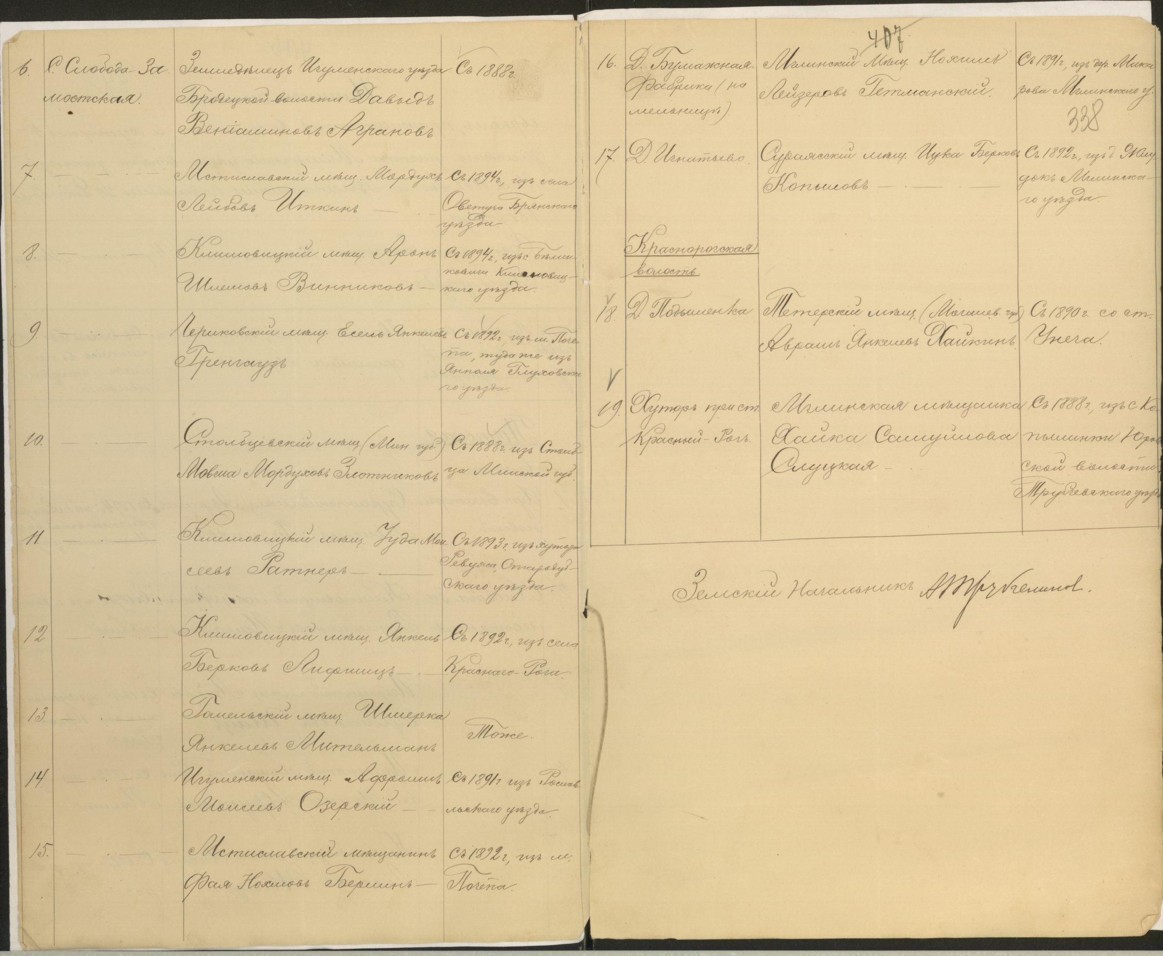 6. С. Слобода За
мостская.
Земледѣлецъ Игуменскаго уѣзда
Бродецкой волости Давыдъ
Веніаминовъ Аграновъ
Съ 1888 г.
7
Мстиславскій мѣщ. Мордухъ
Лейбовъ Иткинъ
Съ 1894 г, изъ села
Овстуга Брянскаго
уѣзда
8
Климовицкій мѣщ. Аронъ
Шлемовъ Винниковъ
Съ 1894 г, изъ с.
уѣзда.
9
Чериковскій мѣщ. Есель Янкелевъ
Гренгаузъ
Съ 1892 г, изъ м. Поче
па, туда же изъ
Янполя Глуховска
го уѣзда.
10
Столбцевскій мѣщ. (Мин. губ.)
Мовша Мордуховъ Злотниковъ
Съ 1888 г изъ Столб
ца Минской губ.
11
Климовицкій мѣщ. Іуда Мои
сеевъ Ратнеръ
Съ 1893 г изъ хутора
скаго уѣзда.
12
Климовицкій мѣщ. Янкель
Берковъ Лифшицъ
Съ 1892 г, изъ села
Краснаго-Рога.
13
Гомельскій мѣщ. Шмерка
Янкелевъ Мительманъ
Тоже.
14
Игуменскій мѣщ. Афроимъ
Моисеевъ Озерскій
Съ 1891 г изъ Рослав
льскаго уѣзда.
15.
Мстиславскій мѣщанинъ
Фая Нохимовъ Берлинъ
Съ 1892 г, изъ м.
Почепа.
407
16. Д. Бумажная
Фабрика (на
мельницѣ)
Мглинскій мѣщ. Нохимъ
Лейзеровъ Гетманскій.
Съ 1891 г, изъ
Мглинскаго у.
338
17 Д. Игнатьево.
Суражскій мѣщ. Ицка Берковъ
Копыловъ
Съ 1892 г, изъ д.
Мглинска
го уѣзда
Краснорогская
волость
18 Д. Подыменка
Тетерскій мѣщ. (Могилев. губ)
Аврамъ Янкелевъ Хайкинъ
Съ 1890 г. со ст.
Унеча.
19. Хуторъ при ст.
Красный-Рогъ.
Мглинская мѣщанка
Хайка Самуйлова
Слуцкая
Съ 1888 г, изъ с.
ской волости
Трубчевскаго уѣзда
Земскій Начальникъ